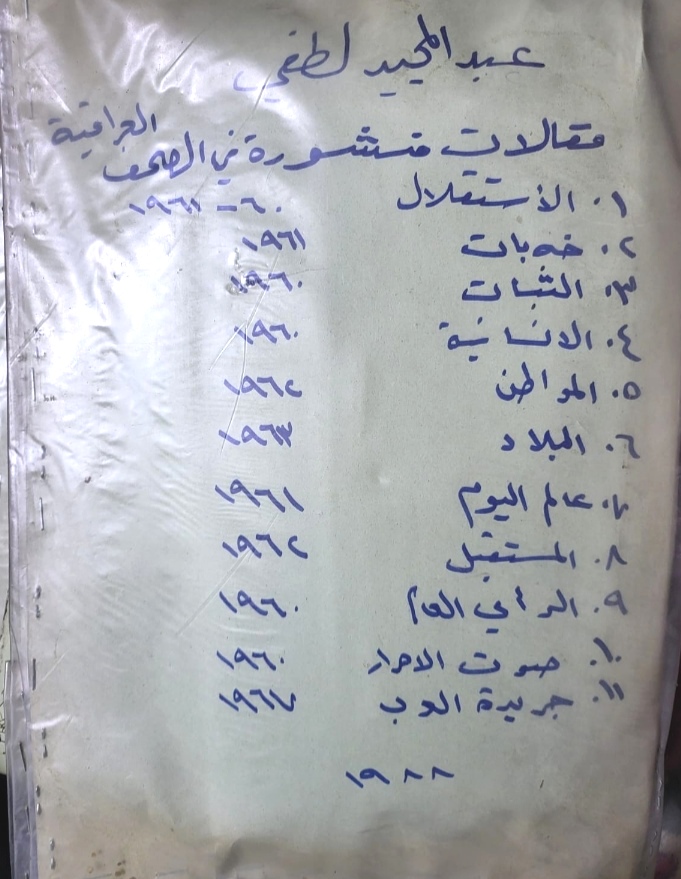 عبد المجيد لطفي
مقالات منشورة في الصحف العراقية
١. الاستقلال ٦٠ - ١٩٦١
٢. خه بات ١٩٦١
٣. الثبات ١٩٦٠
٤. الانسانية ١٩٦٠
٥. المواطن ١٩٦٢
٦. البلاد ١٩٦٣
٧. عالم اليوم ١٩٦١
٨. المستقبل ١٩٦٢
٩. الرأي العام ١٩٦٠
١٠. صوت الاحرار ١٩٦٠
١١. جريدة العرب ١٩٦٧
١٩٨٨